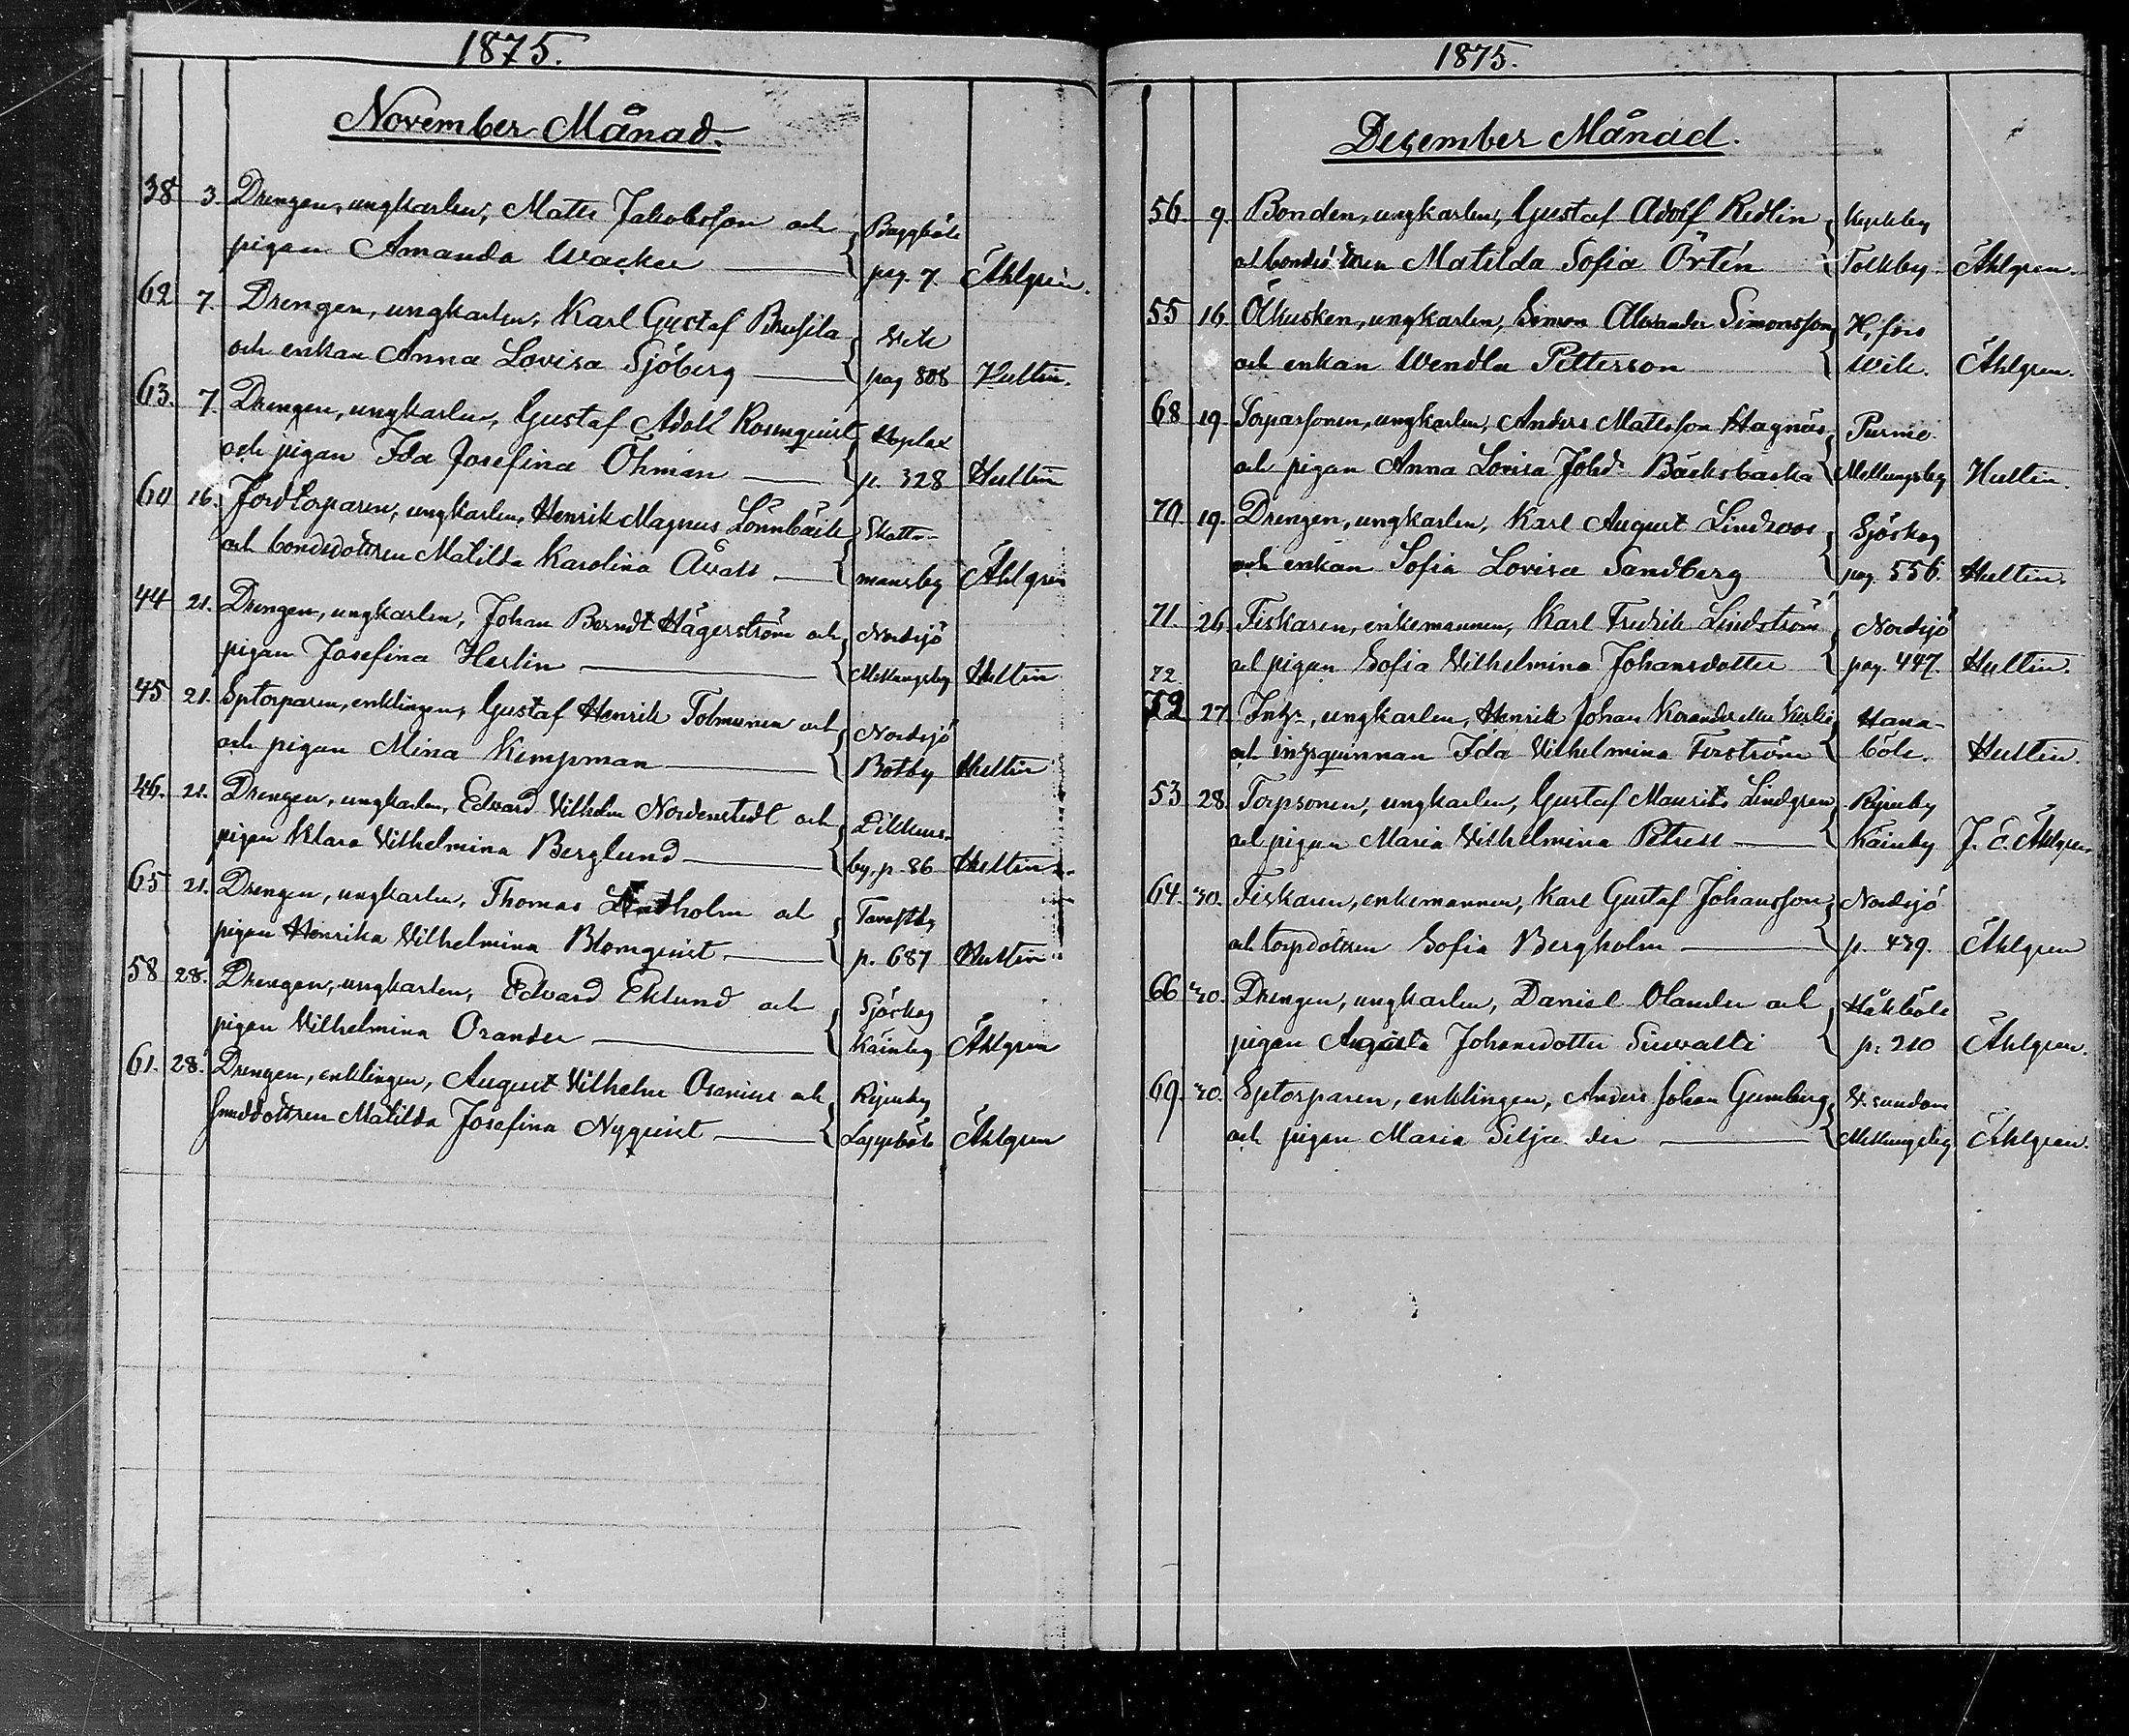 1875.
November Månad.
38 3. Drengen, ungkarlen, Matts Jakobsson och
pigan Amanda Wacker Baggböle pag. 7. Åhlgren.
62 7. Drengen, ungkarlen, Karl Gustaf Brusila
och enkan Anna Lovisa Sjöberg Wik pag 808 Hultin.
63. 7. Drengen, ungkarlen, Gustaf Adolf Rosenqvist
och pigan Ida Josefina Öhman Hoplax p. 328 Hultin
60 16. Jordtorparen, ungkarlen, Henrik Magnus Lönnbäck
och bondedottren Matilda Karolina Skattmansby Åhlgren
44 21. Drengen, ungkarlen, Johan Berndt Hägerström och
pigan Josefina Herlin Nordsjö Mellungsby Hultin
45 21. Sptorparen, enklingen, Gustaf Henrik Tolmunen och
och pigan Mina Kempman Nordsjö Botby Hultin
46. 21. Drengen, ungkarlen, Edvard Vilhelm Nordenstedt och
pigan Klara Vilhelmina Berglund Dikkursby, p. 86 Hultin
65 21. Drengen, ungkarlen, Thomas och
pigan Henrika Vilhelmina Blomqvist Tavastby p. 687 Hultin
58 28. Drengen, ungkarlen, Edvard Eklund och
pigan Vilhelmina Orander Sjöskog Käinby Åhlgren
61. 28. Drengen, enklingen, August Vilhelm Osenius och
smeddottren Matilda Josefina Nyqvist Rijpuby Lappböle Åhlgren
1875.
December Månad.
56. 9. Bonden, ungkarlen, Gustaf Adolf Redlin
och bondedottren Matilda Sofia Örtén Kyrkby Tolkby. Åhlgren.
55 16. Ölkusken, ungkarlen, Simon Alexander Simonsson
och enkan Wendla Petterson H,fors Wik. Åhlgren.
68 19. Torparsonen, ungkarlen, Anders Mattsson Hagnäs
och pigan Anna Lovisa Johdr Bäcksbacka Purmo Mellungsby Hultin.
70 19. Drengen, ungkarlen, Karl August Lindroos
och enkan Sofia Lovisa Sandberg Sjöskog pag. 556. Hultin.
71. 26. Fiskaren, enkemannen, Karl Fredrik Lindström
och pigan Sofia Vilhelmina Johansdotter Nordsjö pag. 447. Hultin.
72
72 27. Inhs, ungkarlen, Henrik Johan eller
och inhsquinnan Ida Vilhelmina Forström Hanaböle. Hultin.
53 28. Torpsonen, ungkarlen, Gustaf Maurits Lindgren
och pigan Maria Vilhelmina Petrell Rijpuby Käinby J. E. Åhlgren
64. 30. Fiskaren, enkemannen, Karl Gustaf Johansson
och torpdottren Sofia Bergholm Nordsjö p. 439. Åhlgren
66 30. Drengen, ungkarlen, Daniel Olander och
pigan Augusta Johansdotter Håkböle p. 210 Åhlgren.
69. 30. Sptorparen, enklingen, Anders Johan Gumberg
och pigan Maria Seljander V. sundom Mellungsby Åhlgren.